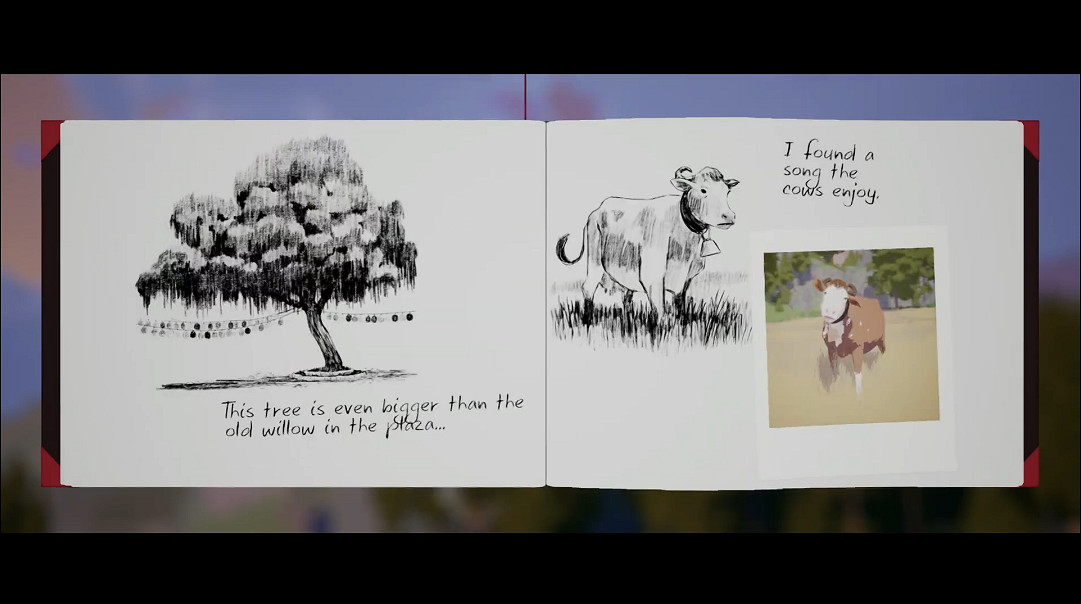 This tree is even bigger than the
old willow in the plaza...
I found a
song the
cows enjoy.